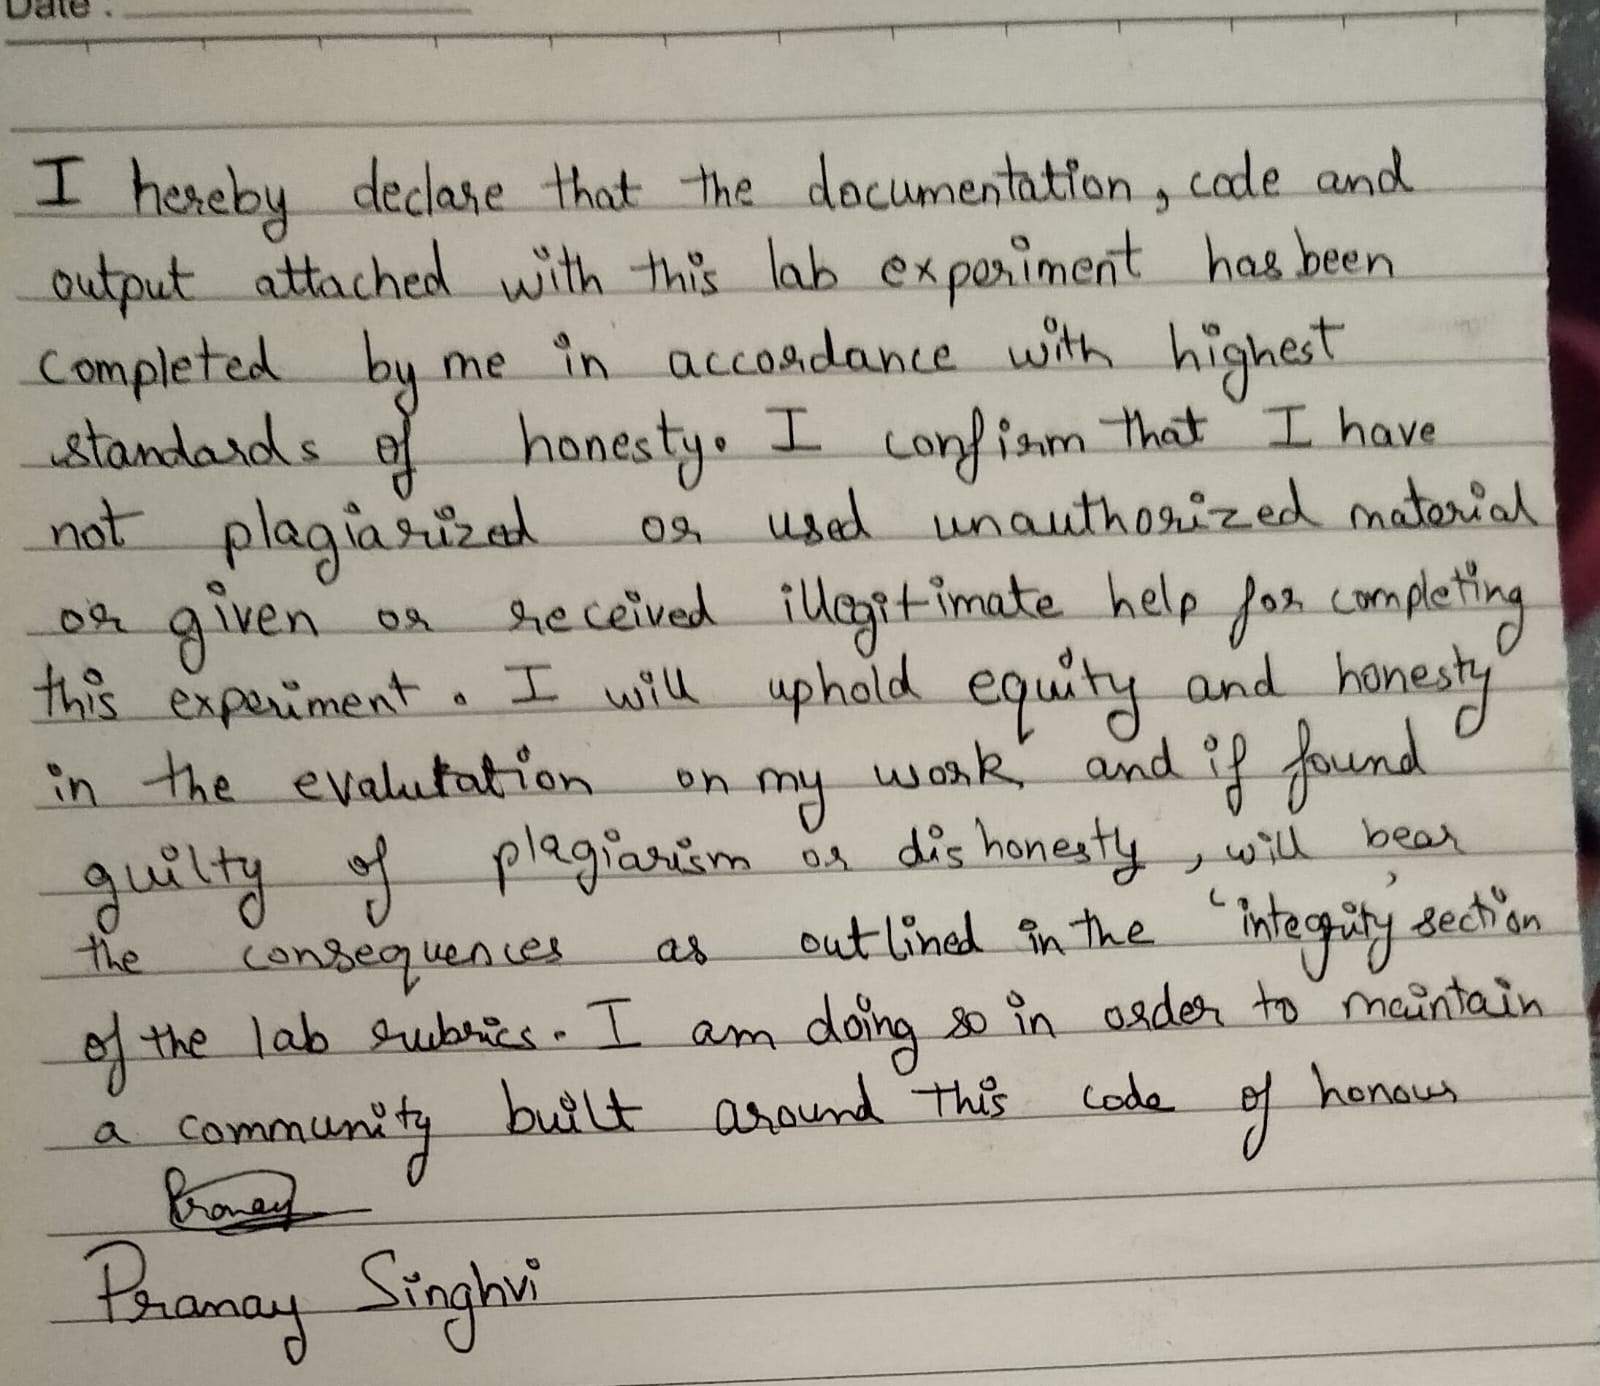 Date :
I hereby declare that the documentation, code and
output attached with this lab experiment has been
completed by me in accordance with highest
standards of honesty. I confirm that I have
not plagiarized or used unauthorized material
or given or received illegitimate help for completing
this experiment. I will uphold equity and honesty
in the evalutation on my work and if found
guilty of plagiarism or dishonesty, will bear
the consequences as outlined in the 'integrity' section
of the lab rubrics. I am doing so in order to maintain
a community built around this code of honour
Pranay
Pranay Singhvi